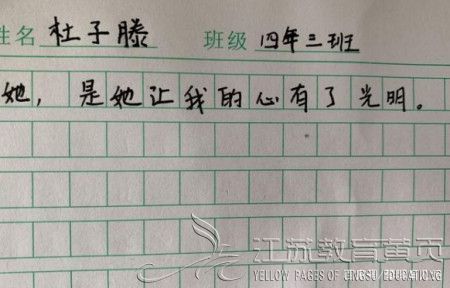 姓名 杜子滕 班级 四年三班
她，是她让我的心有了光明。
江苏教育黄页
YELLOW PAGES OF JINGSU EDUCATION